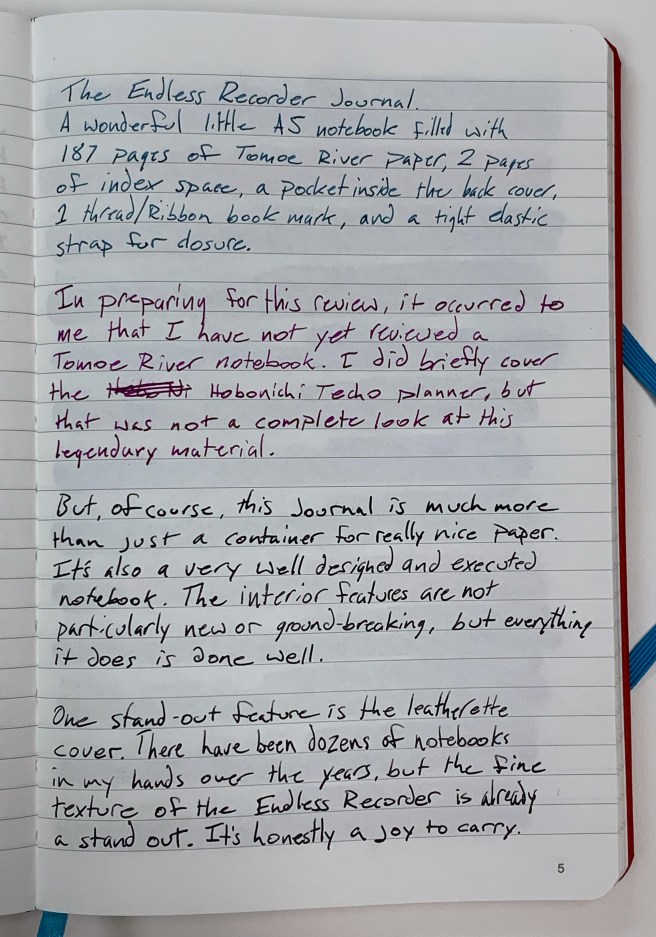 The Endless Recorder Journal.
A wonderful little A5 notebook filled with
187 pages of Tomoe River paper, 2 pages
of index space, a pocket inside the back cover,
1 thread/Ribbon book mark, and a tight elastic
strap for closure.
In preparing for this review, it occurred to
me that I have not yet reviewed a
Tomoe River notebook. I did briefly cover
the Hobonichi Techo planner, but
that was not a complete look at this
legendary material.
But, of course, this Journal is much more
than just a container for really nice paper.
It's also a very well designed and executed
notebook. The interior features are not
particularly new or ground-breaking, but everything
it does is done well.
One stand-out feature is the leatherette
cover. There have been dozens of notebooks
in my hands over the years, but the fine
texture of the Endless Recorder is already
a stand out. It's honestly a joy to carry.
5